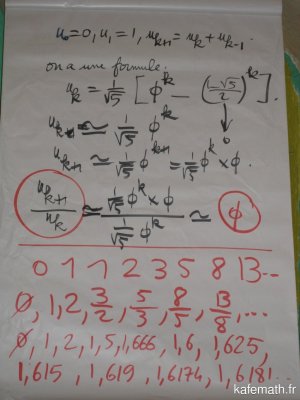 u₀=0, u₁=1, u_{k+1}=u_k+u_{k-1}.
on a une formule:
u_k = 1/√5 [ϕ^k - ((1-√5)/2)^k].
↓
0
u_k ≃ 1/√5 ϕ^k
u_{k+1} ≃ 1/√5 ϕ^{k+1} = 1/√5 ϕ^k × ϕ
u_{k+1}/u_k ≃ (1/√5 ϕ^k × ϕ)/(1/√5 ϕ^k) ≃ ϕ
0 1 1 2 3 5 8 13...
0, 1, 2, 3/2, 5/3, 8/5, 13/8, ...
0, 1, 2, 1,5, 1,666, 1,6, 1,625,
1,615, 1,619, 1,6174, 1,6181...
kafemath.fr